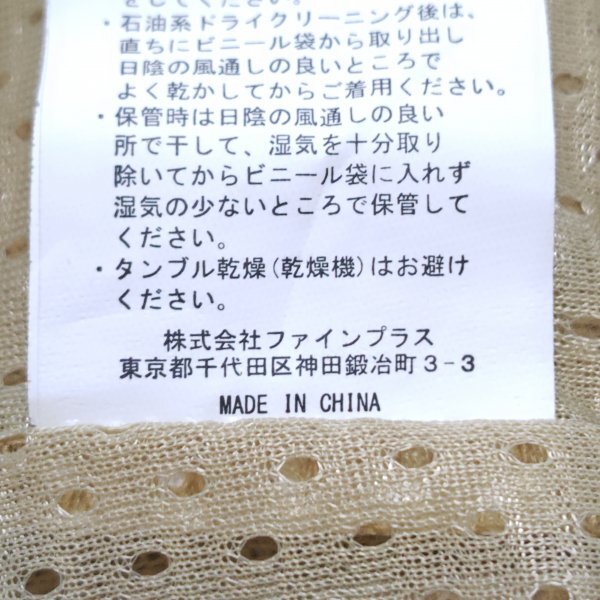 をしてください。
・石油系ドライクリーニング後は、
直ちにビニール袋から取り出し
日陰の風通しの良いところで
よく乾かしてからご着用ください。
・保管時は日陰の風通しの良い
所で干して、湿気を十分取り
除いてからビニール袋に入れず
湿気の少ないところで保管して
ください。
・タンブル乾燥(乾燥機)はお避け
ください。
株式会社ファインプラス
東京都千代田区神田鍛冶町3-3
MADE IN CHINA